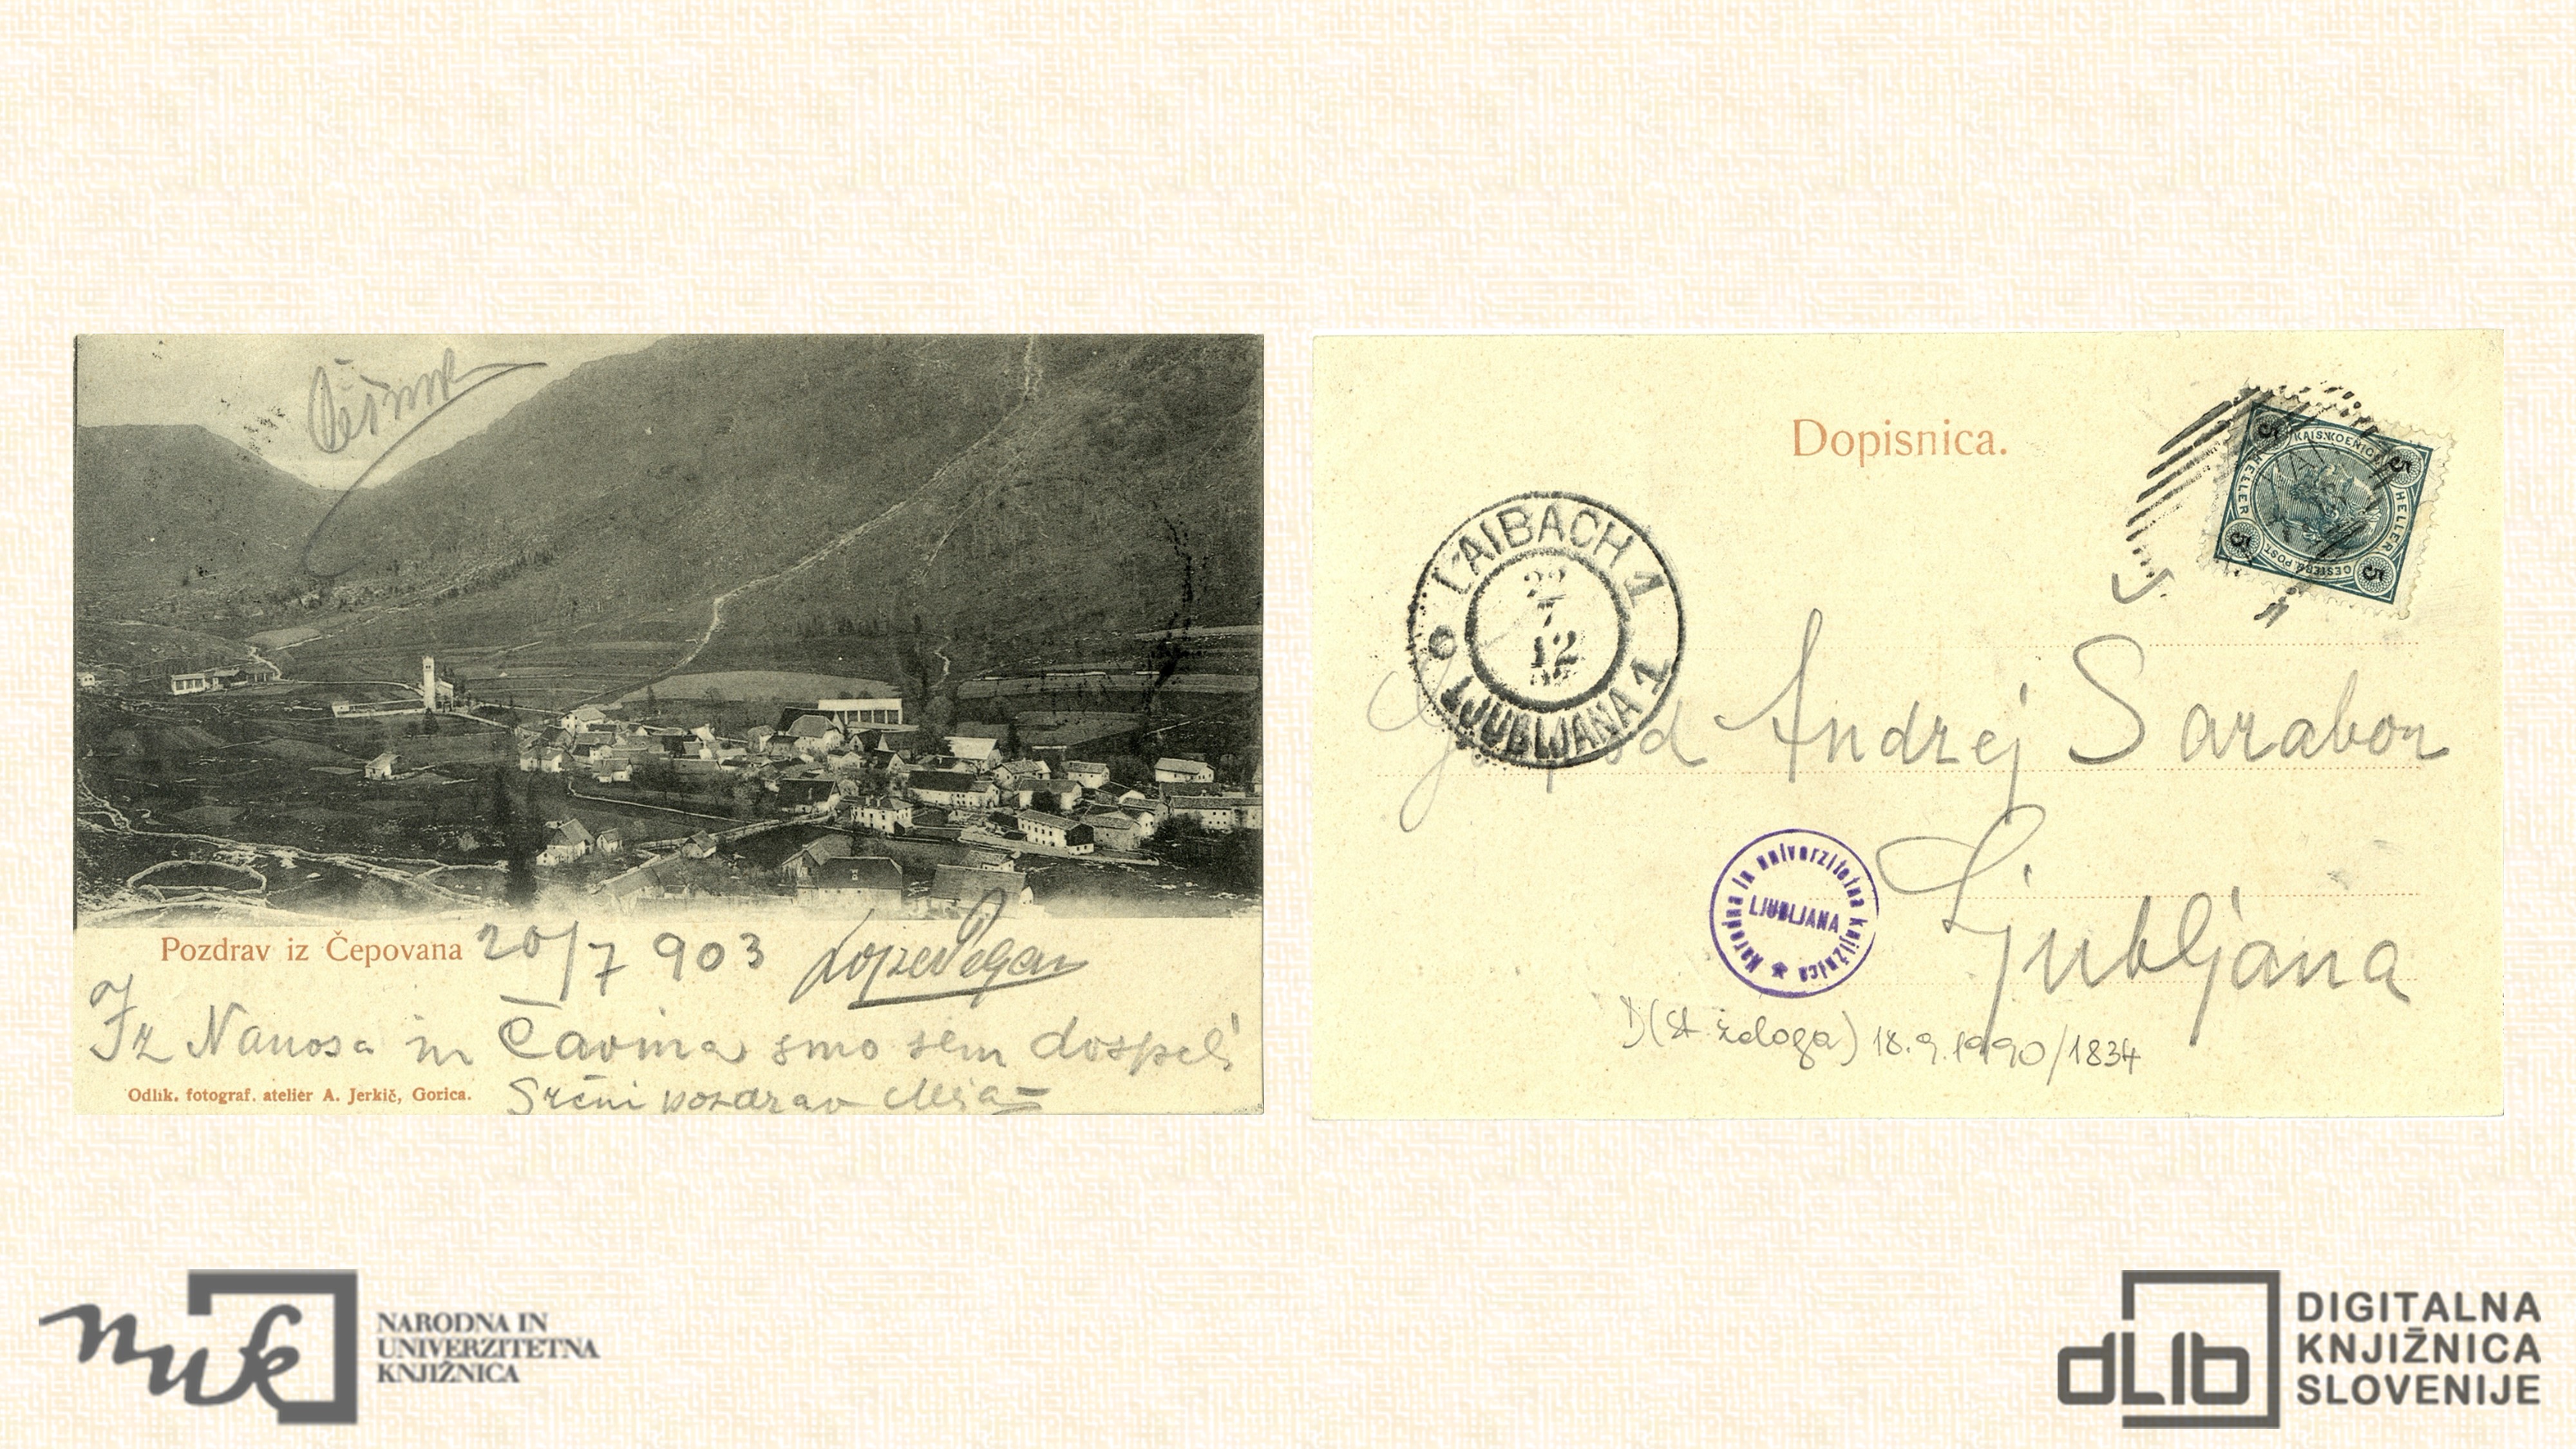 Pozdrav iz Čepovana 20/7 903
Iz Nanosa in Čavna smo sem dospeli
Odlik. fotograf. atelier A. Jerkič, Gorica.
Srčni pozdrav
Dopisnica.
KAIS. KOENIGL.
OESTERR. POST
5 HELLER 5
5 HELLER 5
LAIBACH 1
22
7
12
LJUBLJANA 1
Gospod Andrej Šarabon
Ljubljana
Narodna in univerzitetna knjižnica
LJUBLJANA
D (st. zaloga) 18.9.1990/1834
nuk
NARODNA IN
UNIVERZITETNA
KNJIŽNICA
dLib
DIGITALNA
KNJIŽNICA
SLOVENIJE